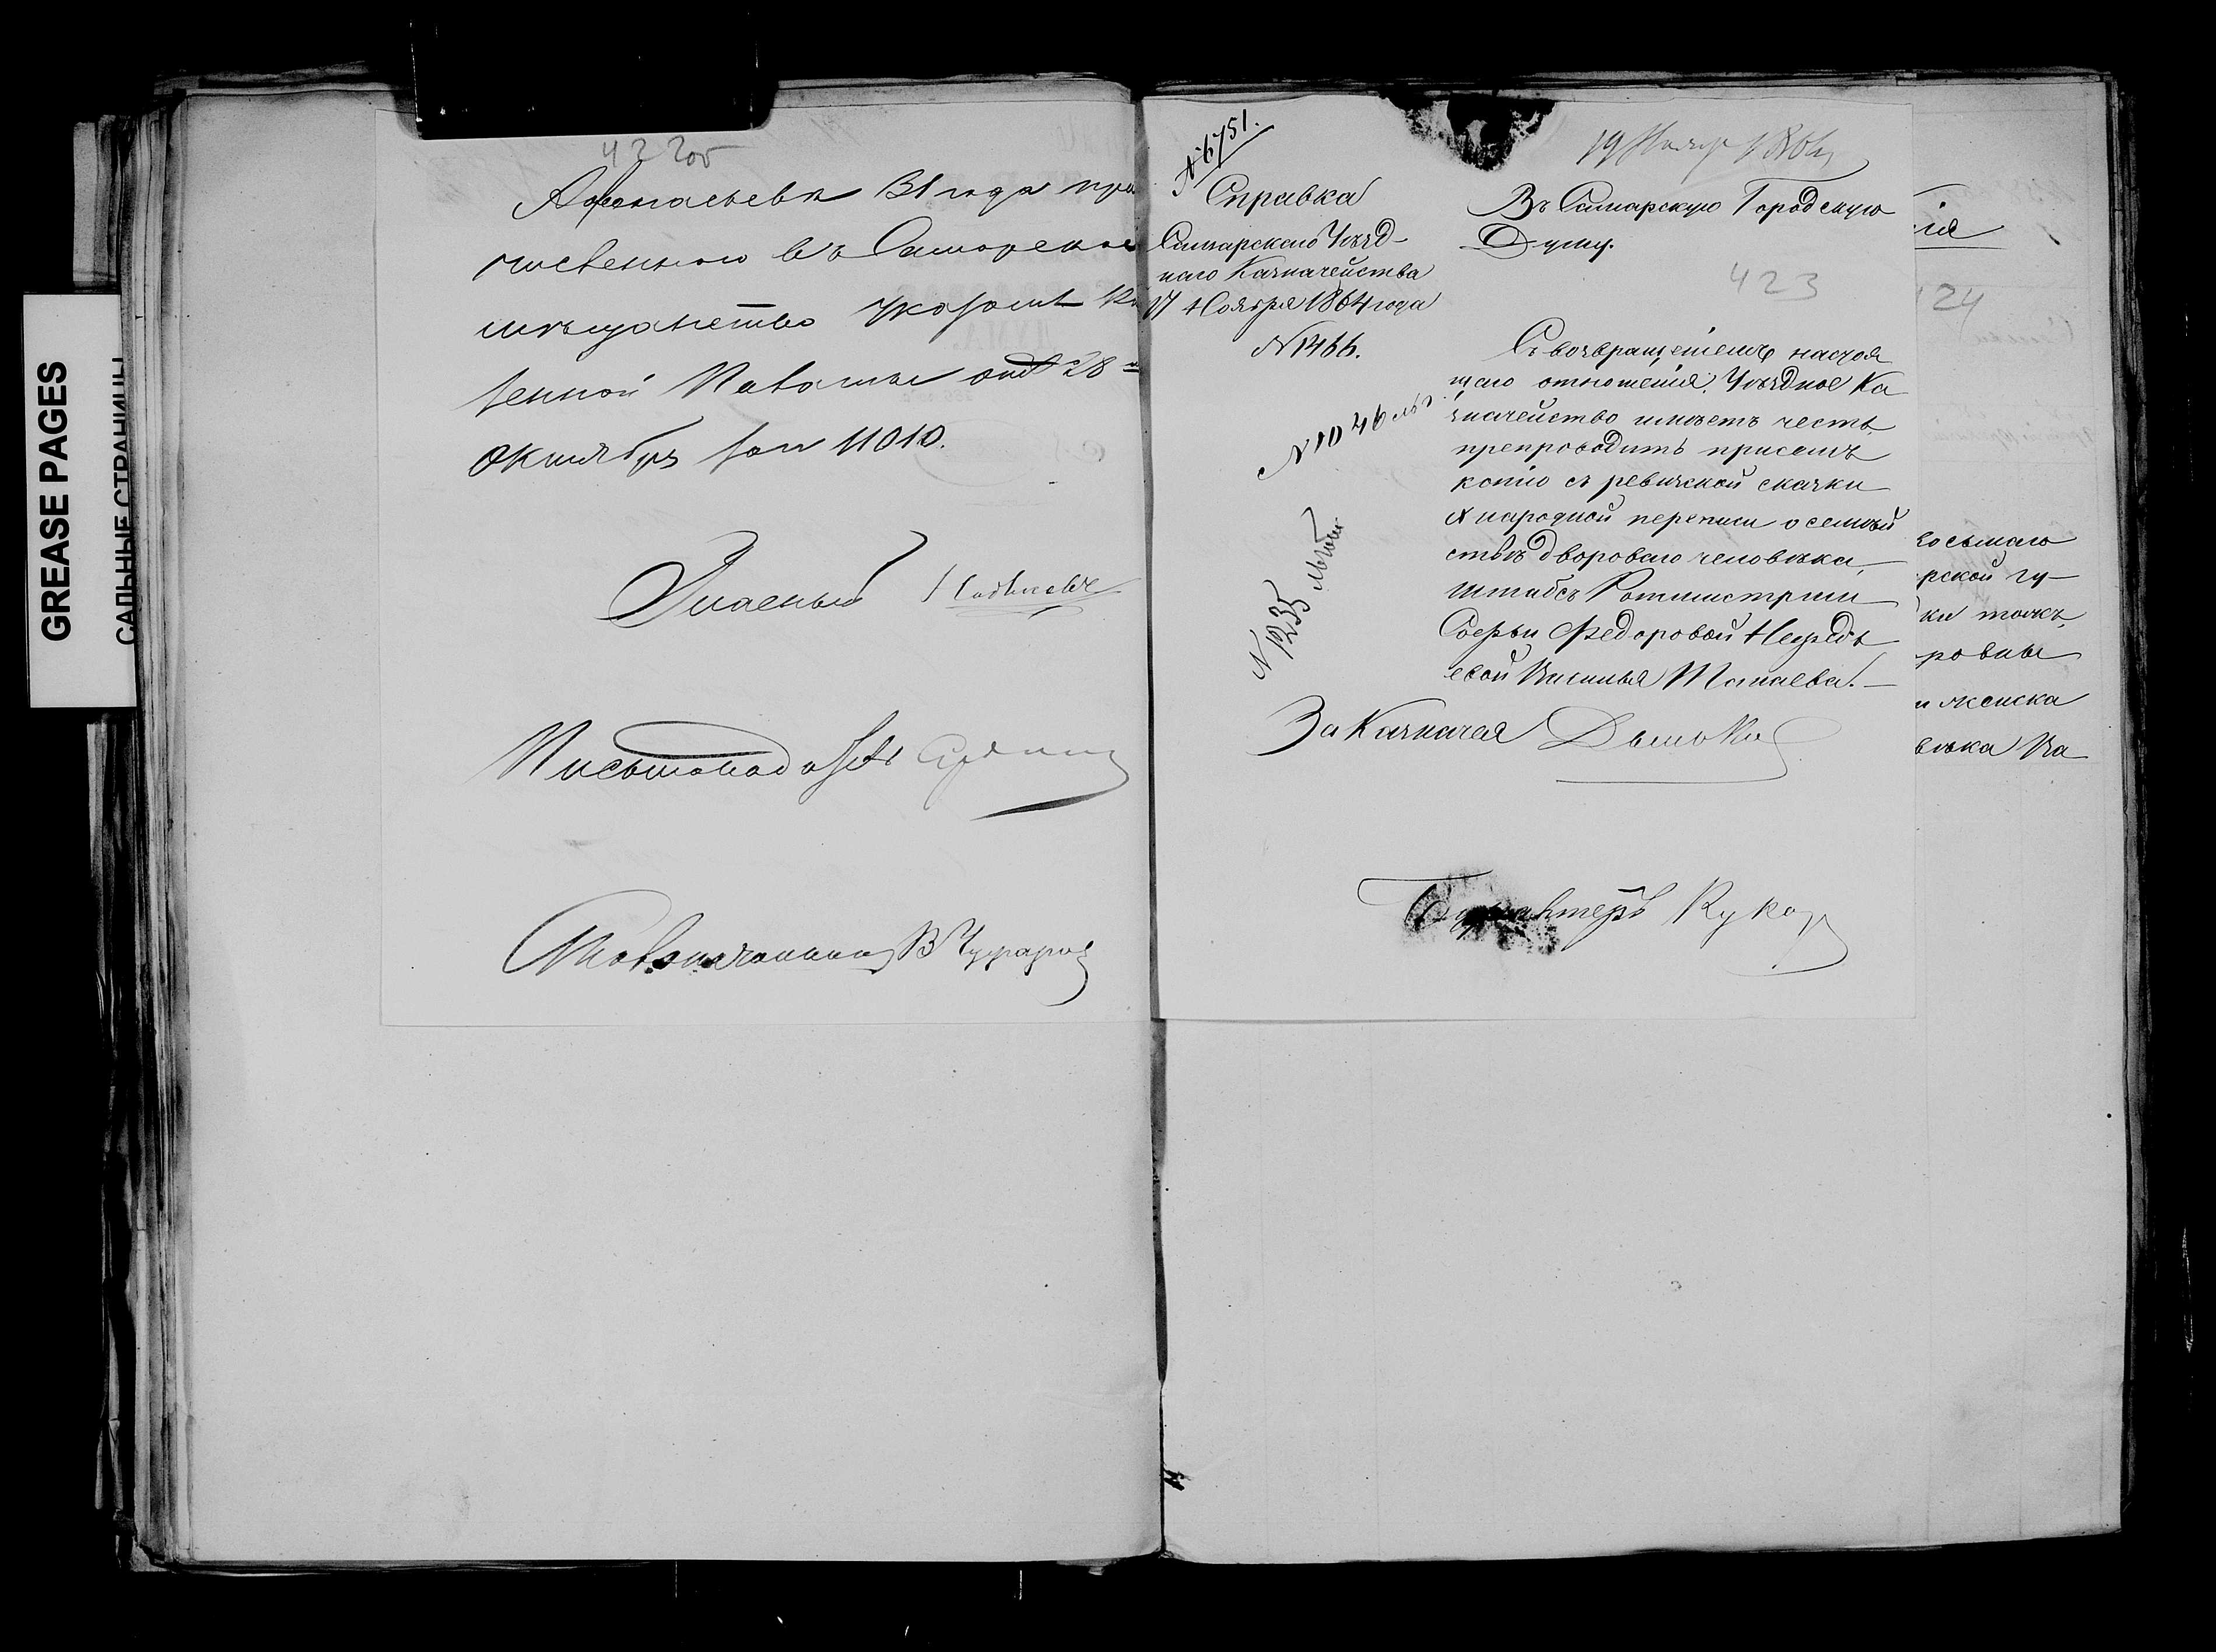 GREASE PAGES
САЛЬНЫЕ СТРАНИЦЫ
422 об
Афонасьева 31 года при
численного въ Самарское
мѣщанство указомъ Ка
зенной Палаты отъ 28
Октября за № 11010.
Гласный
Письмоводитель
Столоначальникъ В
№ 6751.
Справка
Самарскаго Уѣзд-
наго Казначейства
17 Ноября 1864 года
№ 1466.
№ 1046
№ 1235
19 Ноября 1864
Въ Самарскую Городскую
Думу.
423
Съ возвращеніемъ настоя
щаго отношенія, Уѣздное Ка
значейство имѣетъ честь
препроводить присемъ
копію съ ревизской сказки
X народной переписи о семей
ствѣ двороваго человѣка,
Штабсъ Ротмистрши
Софьи Федоровой Нефедь
евой Василья Мамаева.
За Казначея
Бухгалтеръ
ія
124
восьмаго
рской гу-
ки тожъ,
ровны
и женска
вѣка Ва